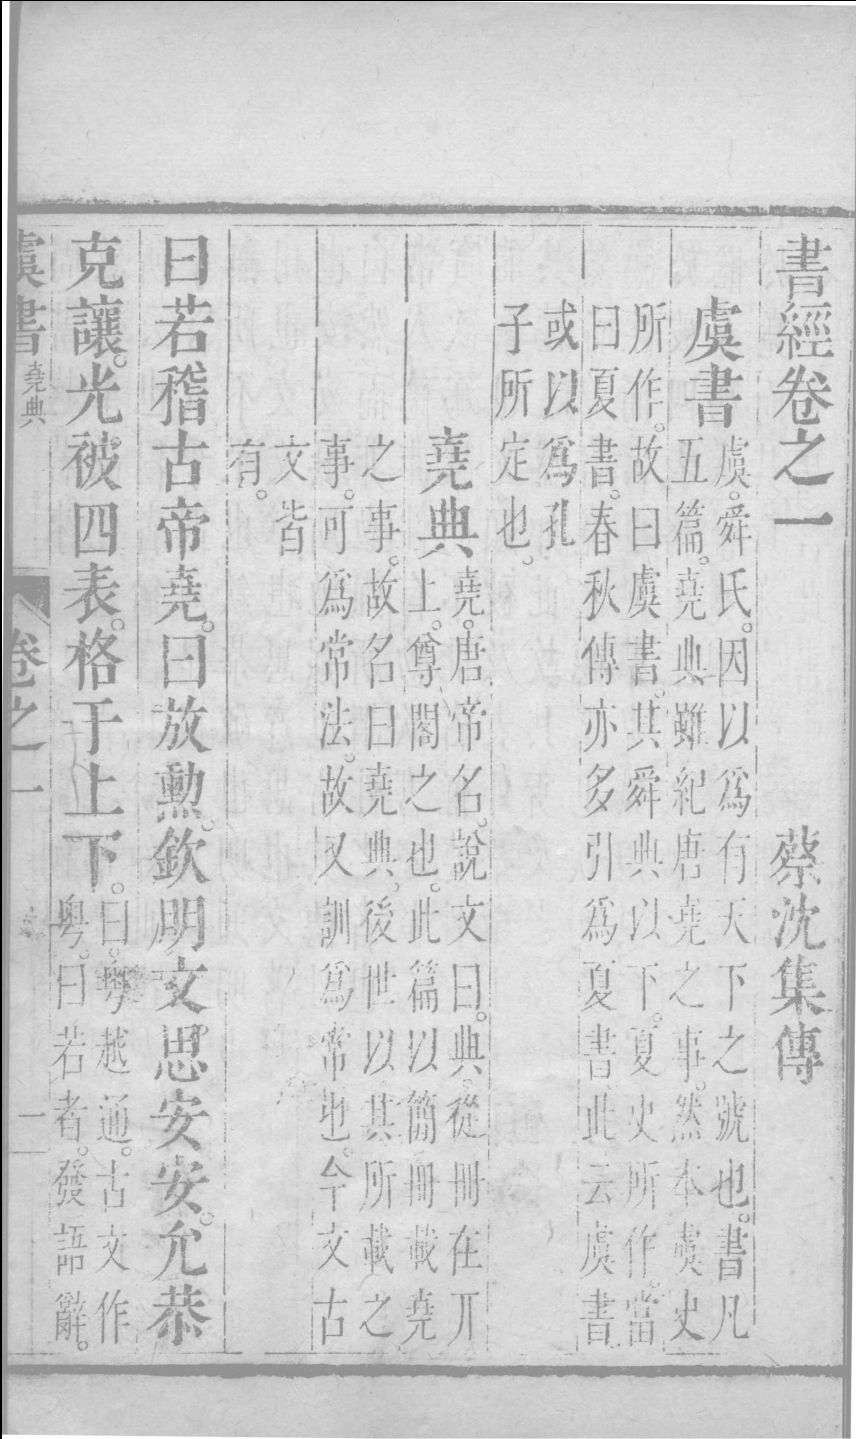 書經卷之一　蔡沈集傳
虞書
虞。舜氏。因以爲有天下之號也。書凡
五篇。堯典雖紀唐堯之事。然本虞史
所作。故曰虞書。其舜典以下。夏史所作。當
曰夏書。春秋傳亦多引爲夏書。此云虞書
或以爲孔
子所定也。
堯典
堯。唐帝名。說文曰。典。從冊在丌
上。尊閣之也。此篇以簡冊載堯
之事。故名曰堯典。後世以其所載之
事。可爲常法。故又訓爲常也。今文古
文皆
有。
曰若稽古帝堯。曰放勲。欽明文。思安安。允恭
克讓。光被四表。格于上下。
曰。粤越通。古文作
粤。曰若者。發語辭。
虞書
堯典
卷之一
一